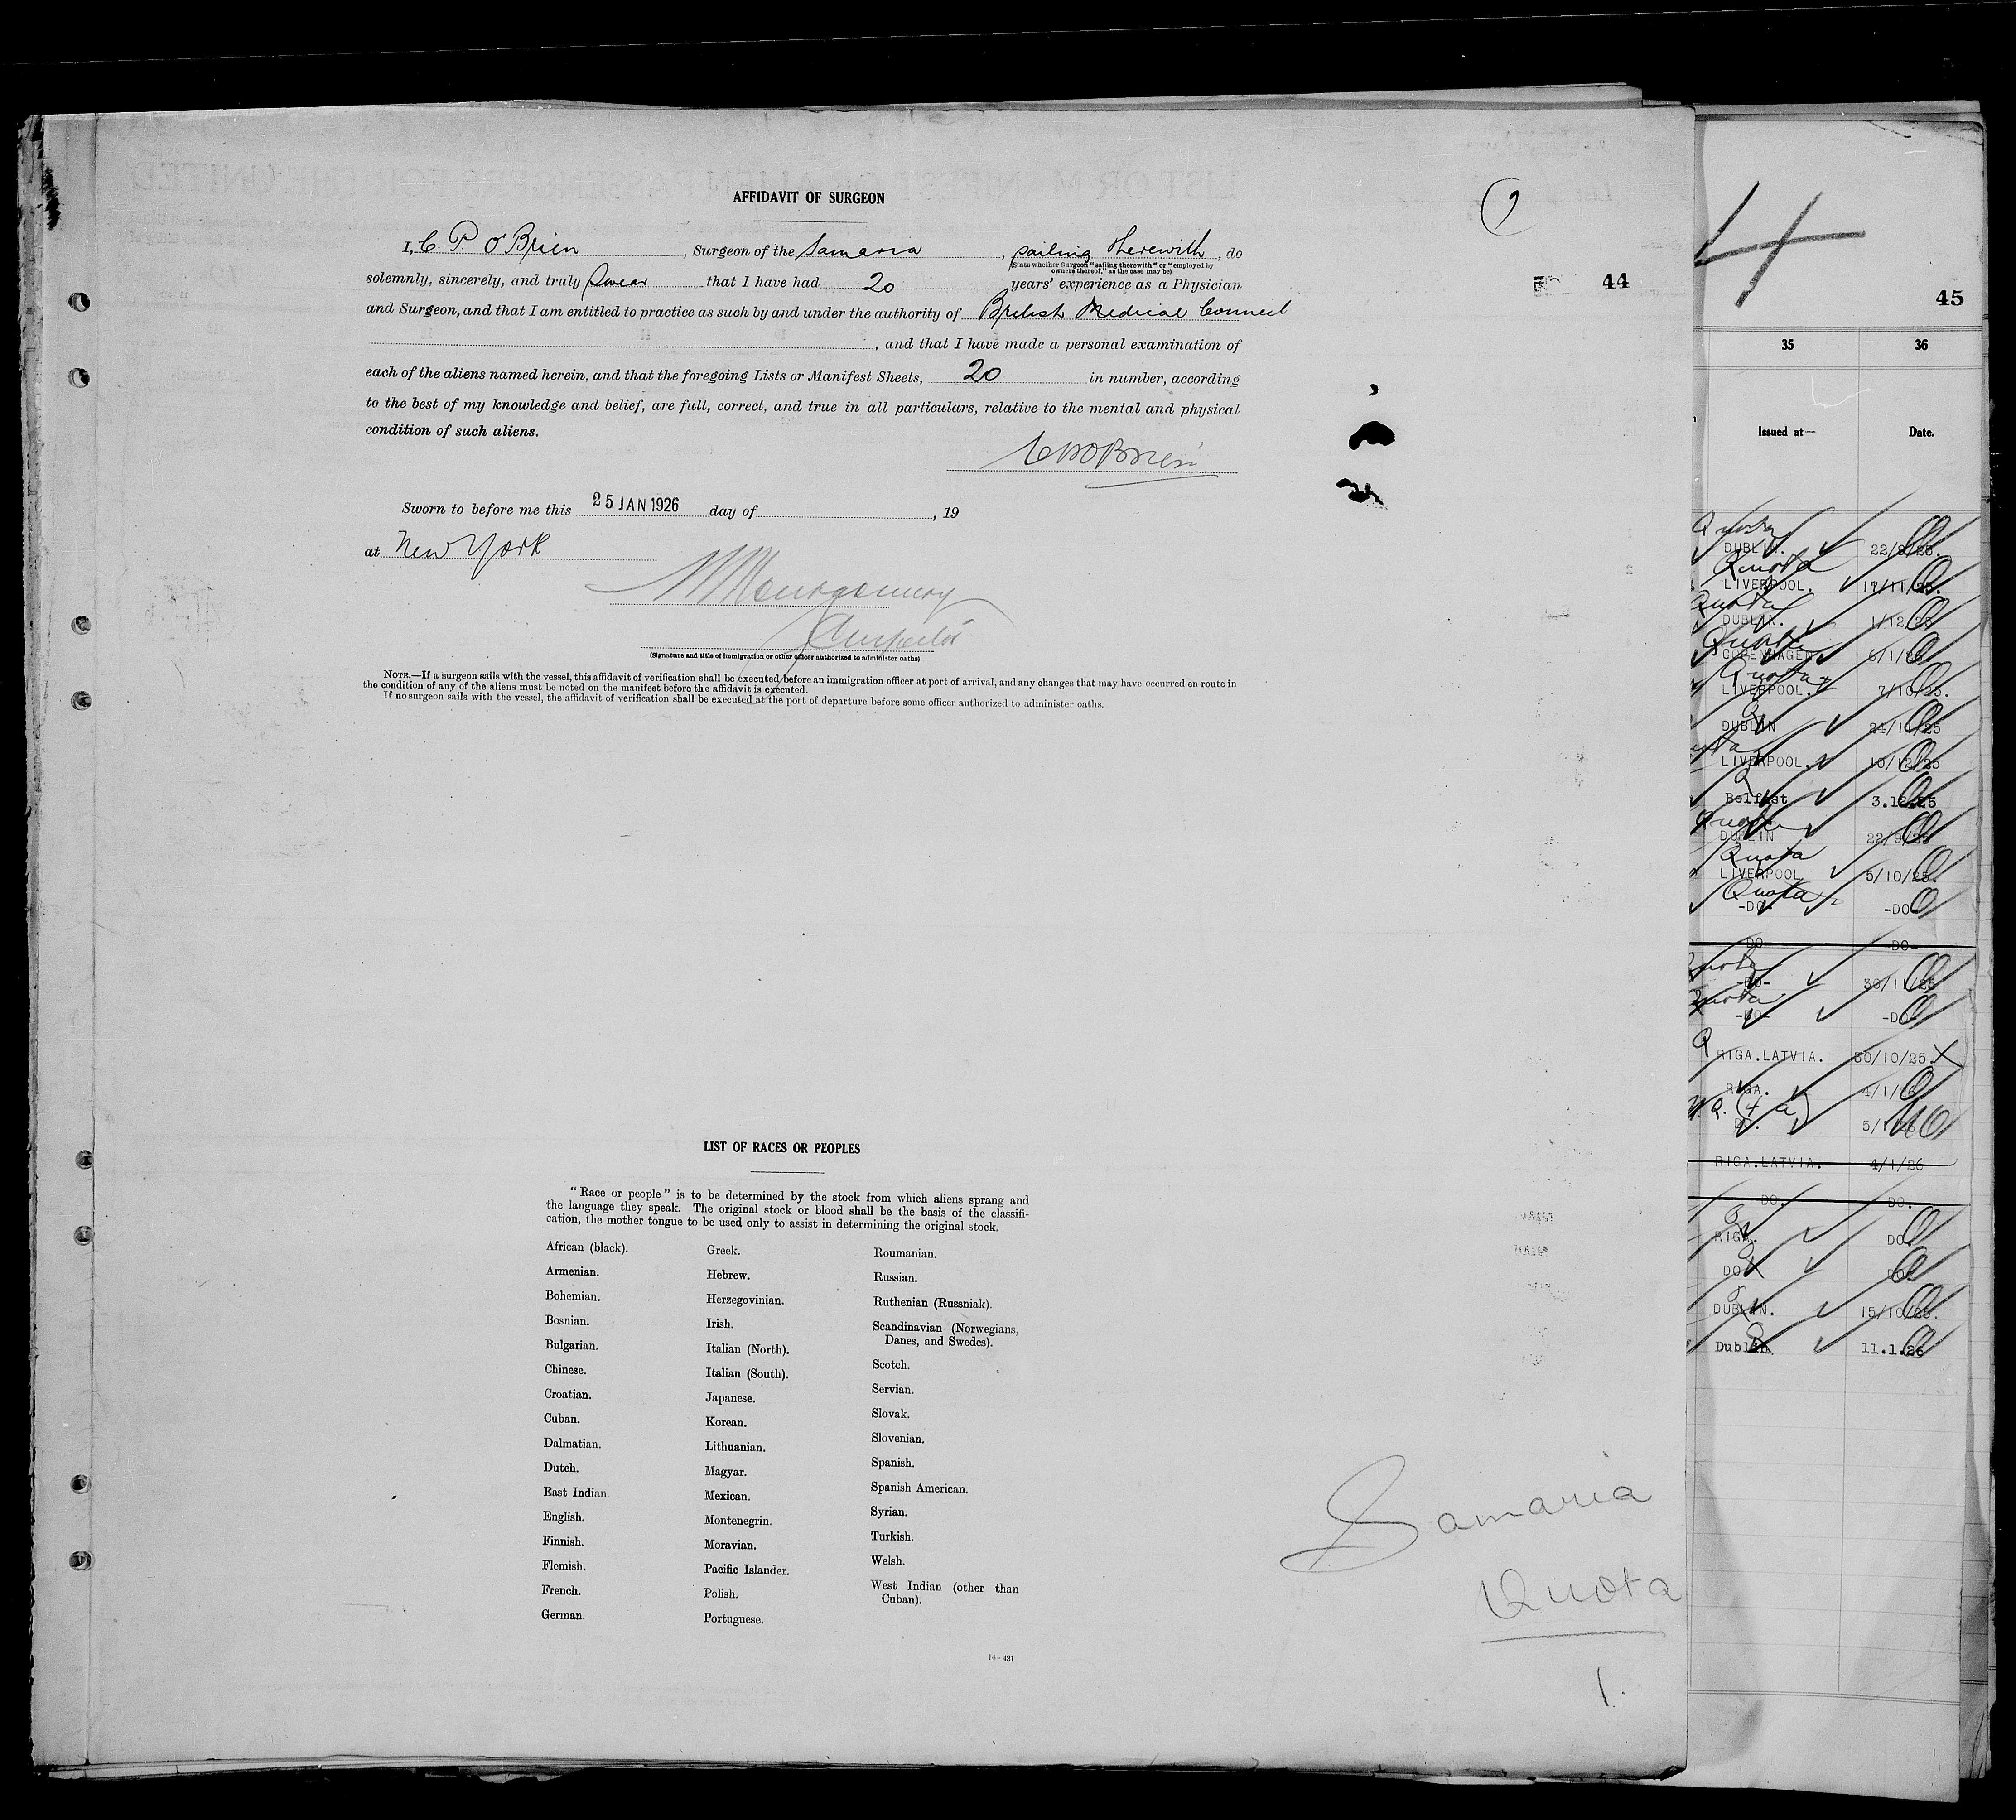 AFFIDAVIT OF SURGEON
I, C. P. O'Brien, Surgeon of the Samaria, sailing therewith, do
(State whether Surgeon "sailing therewith" or "employed by
owners thereof," as the case may be)
solemnly, sincerely, and truly swear that I have had 20 years' experience as a Physician
and Surgeon, and that I am entitled to practice as such by and under the authority of British Medical Council
, and that I have made a personal examination of
each of the aliens named herein, and that the foregoing Lists or Manifest Sheets, 20 in number, according
to the best of my knowledge and belief, are full, correct, and true in all particulars, relative to the mental and physical
condition of such aliens.
C P O'Brien
Sworn to before me this 25 JAN 1926 day of , 19
at New York
Montgomery
Inspector
(Signature and title of immigration or other officer authorized to administer oaths)
NOTE.—If a surgeon sails with the vessel, this affidavit of verification shall be executed before an immigration officer at port of arrival, and any changes that may have occurred en route in
the condition of any of the aliens must be noted on the manifest before the affidavit is executed.
If no surgeon sails with the vessel, the affidavit of verification shall be executed at the port of departure before some officer authorized to administer oaths.
44
LIST OF RACES OR PEOPLES
"Race or people" is to be determined by the stock from which aliens sprang and
the language they speak. The original stock or blood shall be the basis of the classifi-
cation, the mother tongue to be used only to assist in determining the original stock.
African (black).
Armenian.
Bohemian.
Bosnian.
Bulgarian.
Chinese.
Croatian.
Cuban.
Dalmatian.
Dutch.
East Indian.
English.
Finnish.
Flemish.
French.
German.
Greek.
Hebrew.
Herzegovinian.
Irish.
Italian (North).
Italian (South).
Japanese.
Korean.
Lithuanian.
Magyar.
Mexican.
Montenegrin.
Moravian.
Pacific Islander.
Polish.
Portuguese.
Roumanian.
Russian.
Ruthenian (Russniak).
Scandinavian (Norwegians,
Danes, and Swedes).
Scotch.
Servian.
Slovak.
Slovenian.
Spanish.
Spanish American.
Syrian.
Turkish.
Welsh.
West Indian (other than
Cuban).
14-431
Samaria
Quota
1.
4
45
35 36
Issued at— Date.
Quota
DUBLIN. 22/9/25.
Quota
LIVERPOOL. 17/11/25.
Quota
DUBLIN. 1/12/25
Quota
COPENHAGEN 6/1/26
Quota
LIVERPOOL. 7/10/25.
Q
DUBLIN 24/11/25
LIVERPOOL. 10/12/25
Q
Belfast 3.12.25
Quota
DUBLIN 22/9/25
Quota
LIVERPOOL 5/10/25.
Quota
-DO- -DO-
DO DO-
Quota
-DO- 30/11/25
Quota
-DO- -DO-
Q
RIGA.LATVIA. 30/10/25. X
RIGA. 4/1/26
DO. 5/1/26
RIGA.LATVIA. 4/1/26
DO. DO.
RIGA. DO.
DO DO.
DUBLIN. 15/10/25.
Dublin. 11.1.26